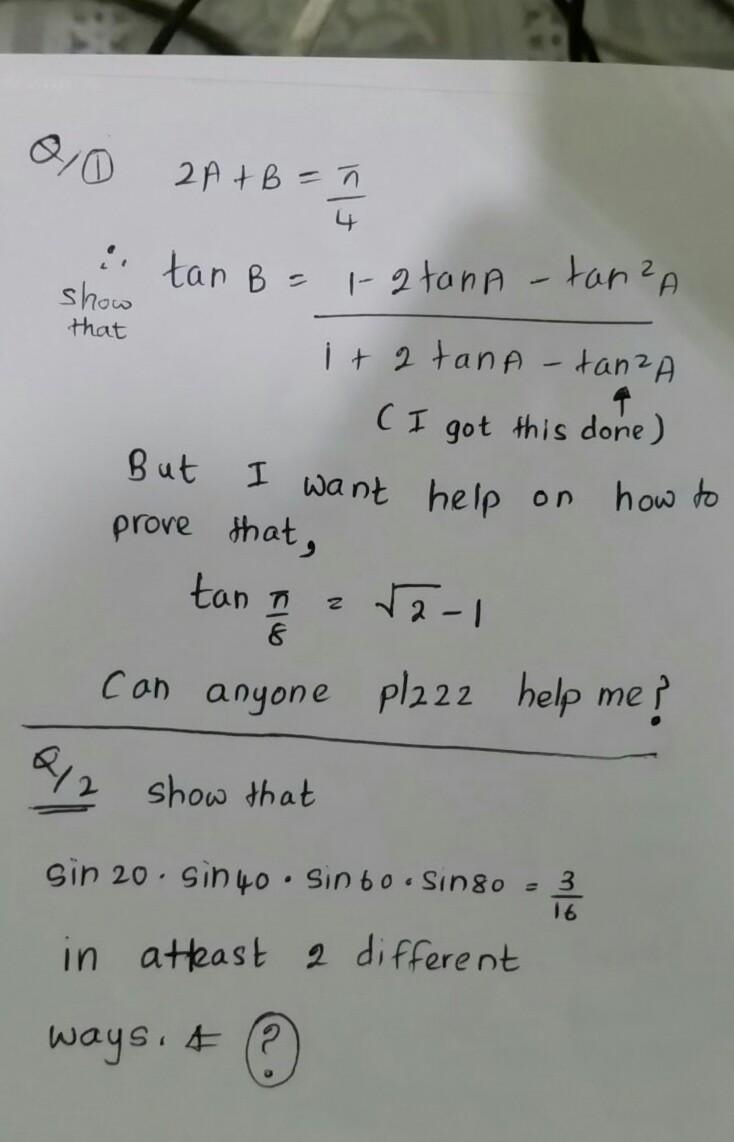 Q/① 2A + B = π/4
∴ tan B = 1 - 2 tan A - tan²A / 1 + 2 tan A - tan²A
show
that
(I got this done)
But I want help on how to
prove that,
tan π/8 = √2 - 1
Can anyone plzzz help me?
Q/2 show that
sin 20 . sin 40 . sin 60 . sin 80 = 3/16
in atleast 2 different
ways. ⇐ ?